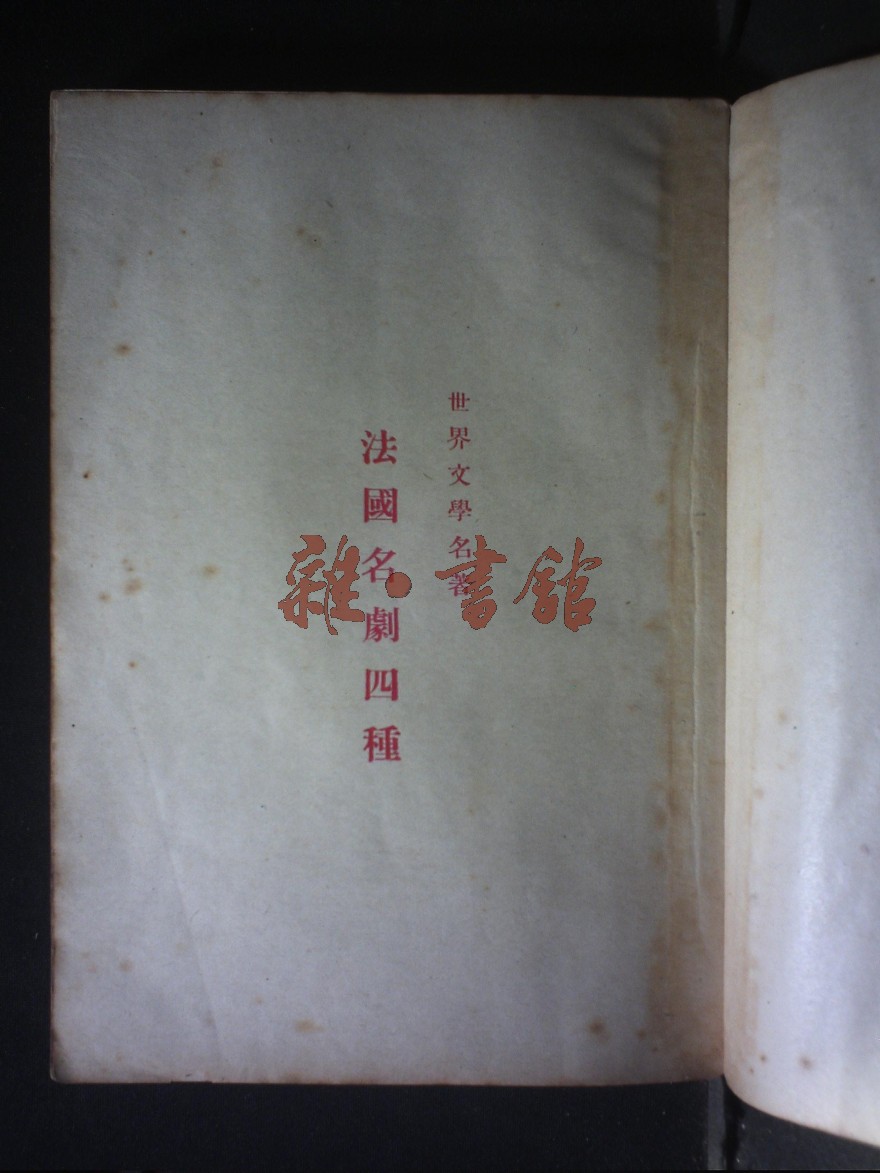 世界文學名著
法國名劇四種
雜·書館